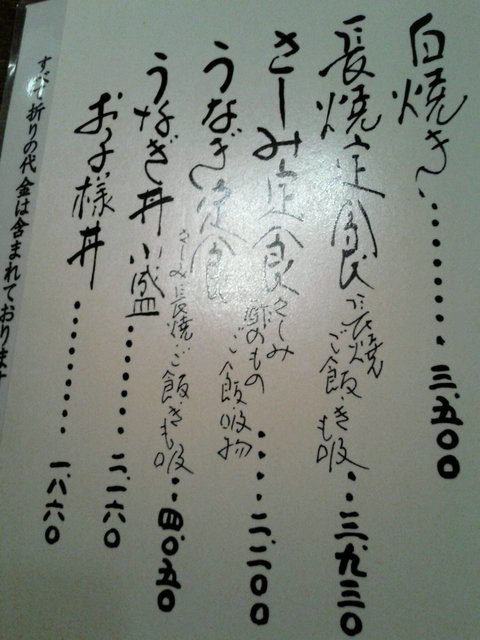 白焼き 三、五〇〇
長焼定食 長焼 ご飯・きも吸 三、九三〇
さしみ定食 さしみ 酢のもの ご飯・吸物 二、二〇〇
うなぎ定食 さしみ 長焼 ご飯・きも吸 四、〇五〇
うなぎ丼 小盛 二、二六〇
お子様丼 一、八六〇
すべて折りの代金は含まれております